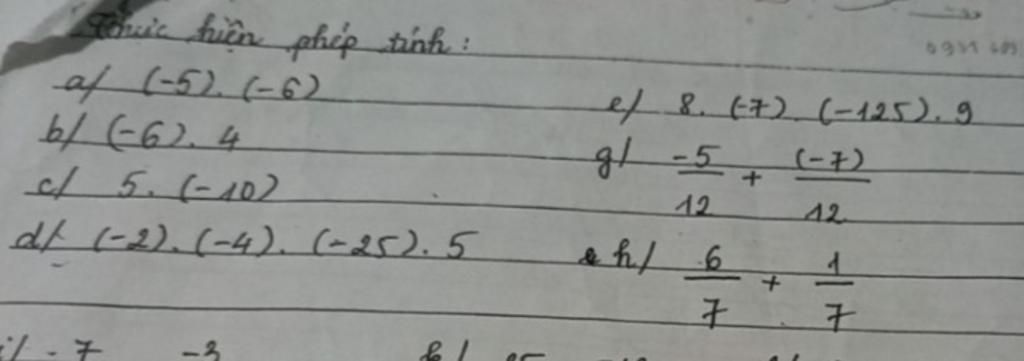 Thực hiện phép tính:
a/ (-5). (-6)
b/ (-6). 4
c/ 5. (-10)
d/ (-2). (-4). (-25). 5
e/ 8. (-7). (-125). 9
g/ -5/12 + (-7)/12
h/ 6/7 + 1/7
i/ -7 -3